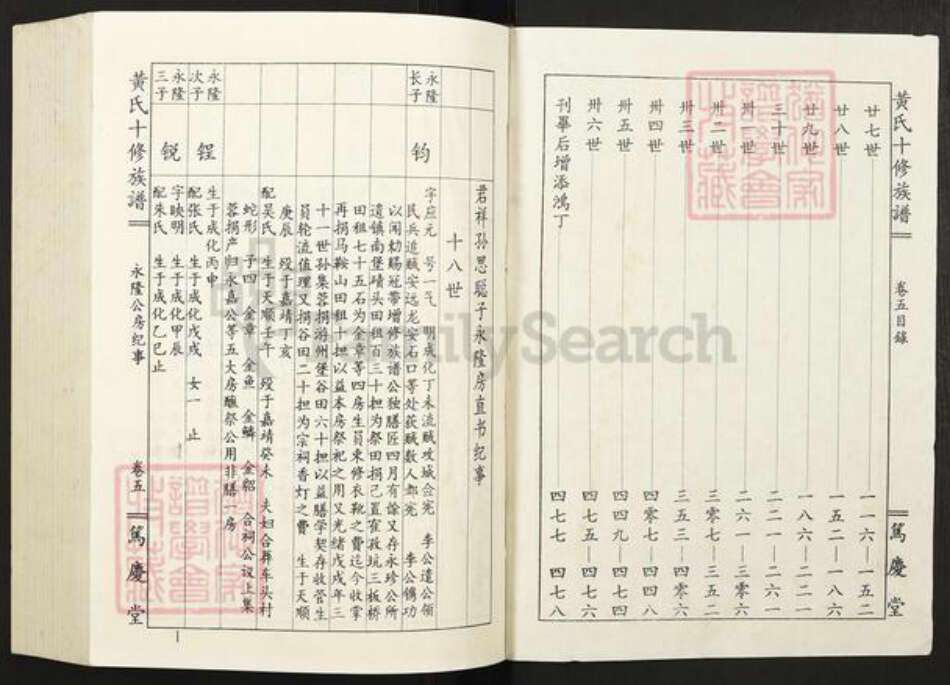 黄氏十修族谱
卷五目録
篤慶堂
廿七世 一一六—一五二
廿八世 一五二—一八六
廿九世 一八六—二二一
三十世 二二一—二六一
卅一世 二六一—三零六
卅二世 三零七—三五二
卅三世 三五三—四零六
卅四世 四零七—四四八
卅五世 四四九—四七四
卅六世 四七五—四七六
刊畢后增添鴻丁 四七七 四七八
君祥孙思聪子永隆房直书纪事
十八世
永隆长子
钧
字应元 号一气 明成化丁未流贼攻城佥宪 李公遣公领
民兵追贼安远龙安石口等处获贼数人都宪 李公儁功
以闻勅赐冠带增修族谱公独膳匠四月有馀又存永珍公所
遗镇南堡磜头田租百三十担为祭田捐己直寉孜坑三板桥
田租七十五石为金章等四房生员束修衣靴之费迄今收掌
再捐马鞍山田租十担以益本房祭祀之用又光绪戊戌年三
十一世孙集蓉捐游州堡谷田六十担以益膳学契存收管生
员轮流值理又捐谷田二十担为宗祠香灯之费 生于天顺
庚辰 殁于嘉靖丁亥
配吴氏 生于天顺壬午 殁于嘉靖癸未 夫妇合葬车头村
蛇形 子四 金章 金鱼 金鳞 金貂 合祠公议上集
蓉捐产归永嘉公等五大房醮祭公用非膳一房
永隆次子
锃
生于成化丙申
配张氏 生于成化戊戌 女一 止
永隆三子
锐
字映明 生于成化甲辰
配朱氏 生于成化乙巳止
黄氏十修族谱
永隆公房纪事
卷五
篤慶堂
1
FamilySearch